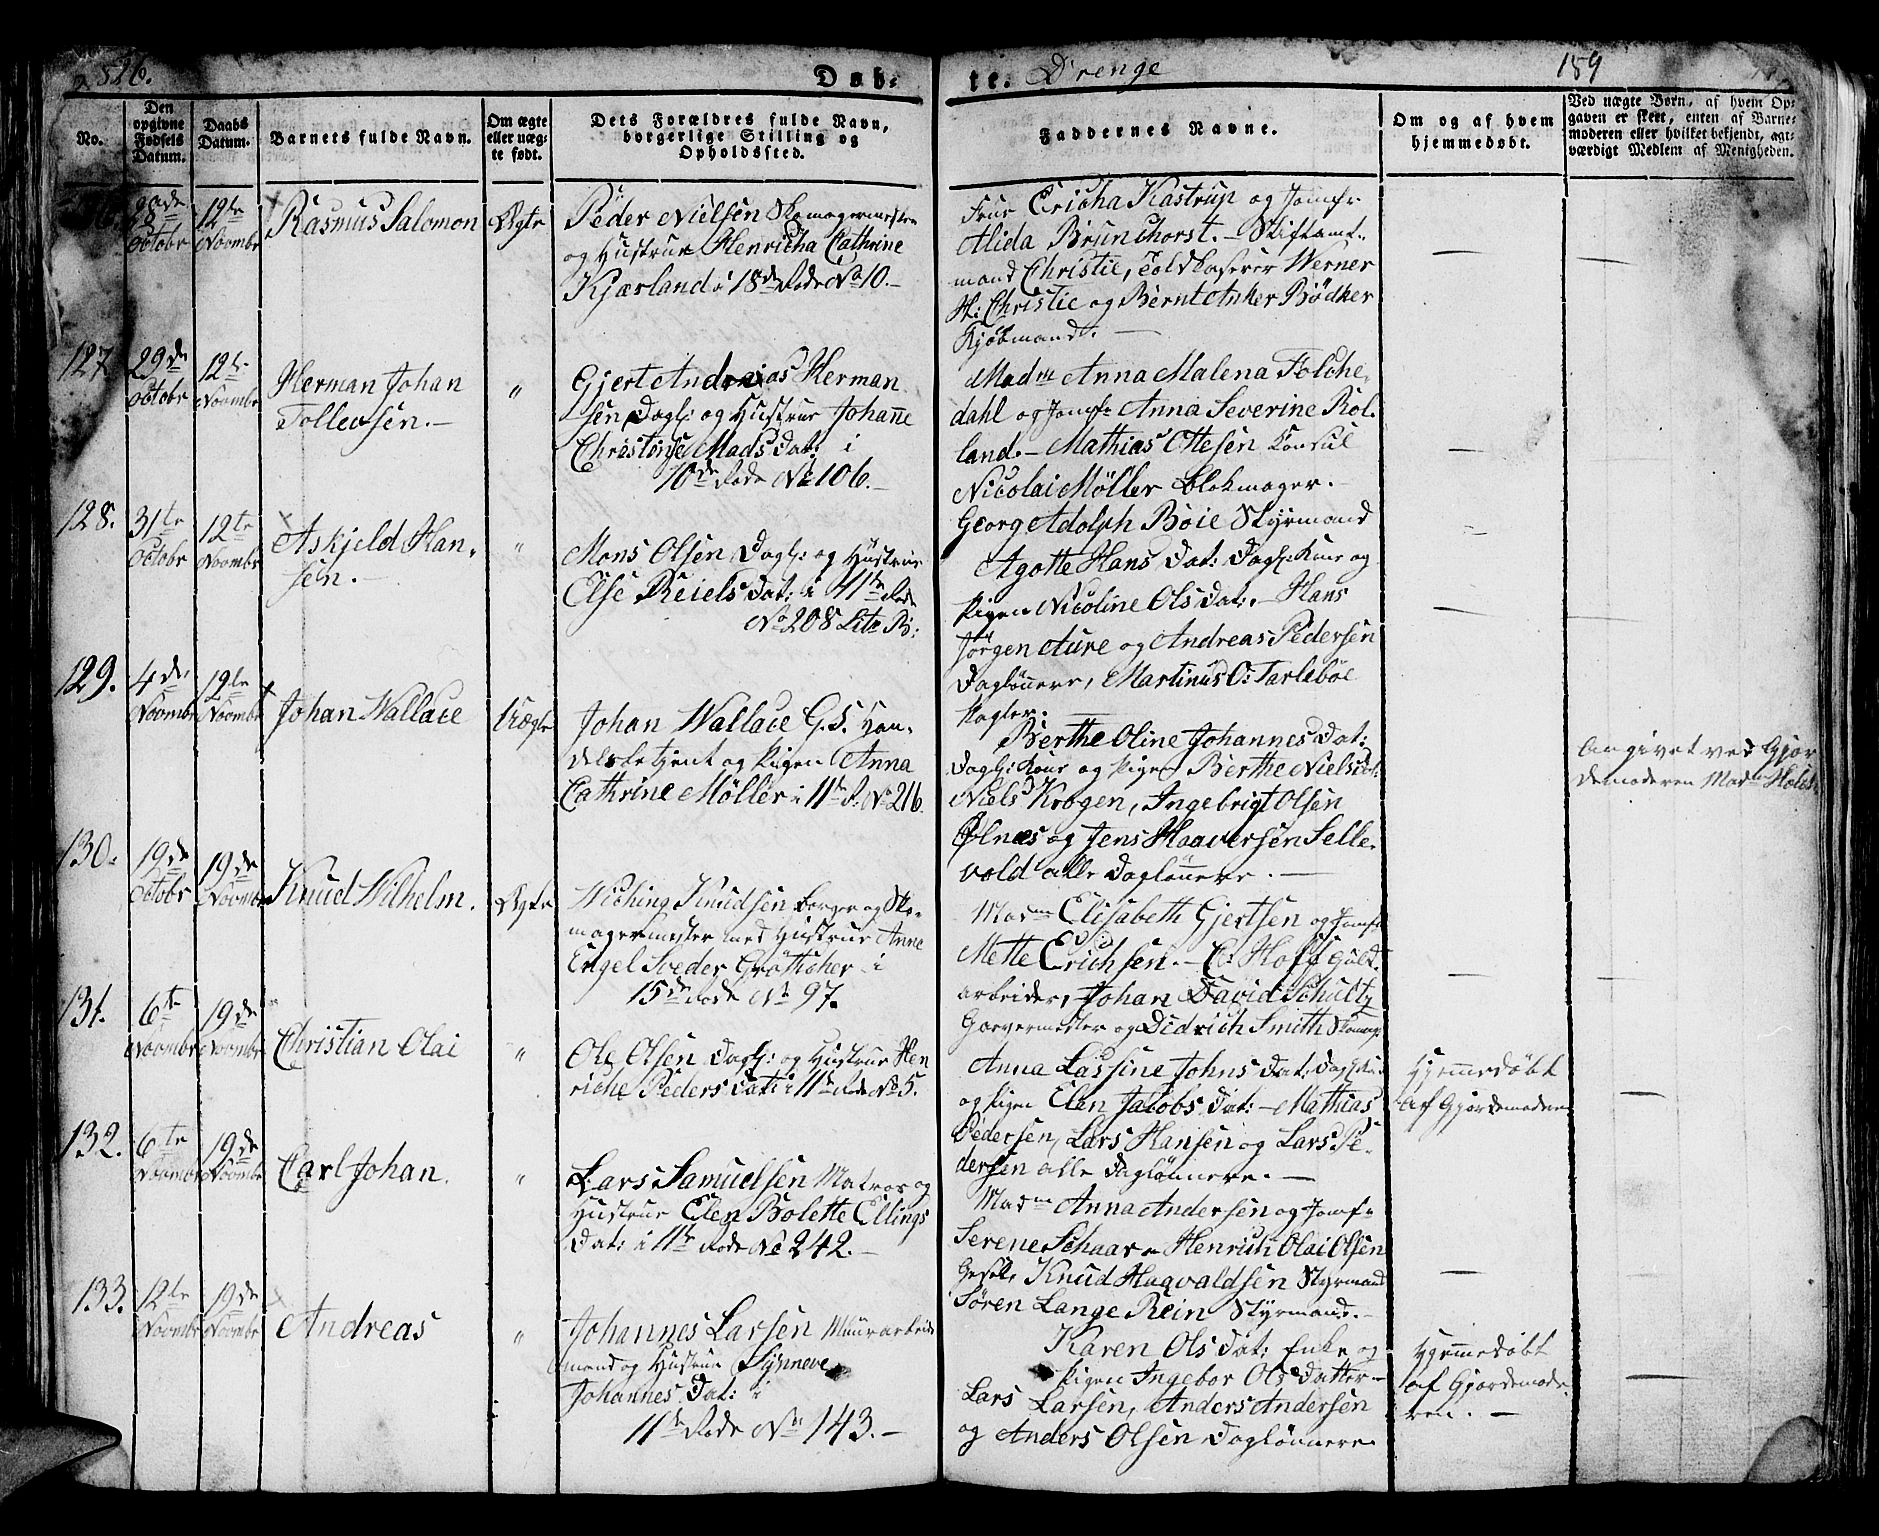 526.
Døb-
te. Drenge
189
No.
Den opgivne Fødsels Datum.
Daabs Datum.
Barnets fulde Navn.
Om ægte eller uægte født.
Dets Forældres fulde Navn, borgerlige Stilling og Opholdssted.
Faddernes Navne.
Om og af hvem hjemmedøbt.
Ved uægte Børn, af hvem Opgaven er skeet, enten af Barnemoderen eller hvilket bekjendt, agtværdigt Medlem af Menigheden.
28de Octobr
12te Novmbr
Rasmus Salomon
Ægte
Peder Nielsen Skomagermester
og Hustrue Henricha Cathrine
Kjærland i 18de Rode No 10.-
Frue Ericha Kastrup og Jomfr
Alida Brunchorst. - Stiftamt-
mand Christie, Toldkaserer Werner
H: Christie og Bernt Anker Bödker
Kjöbmand. -
127.
29de Octobr
12te Novmbr
Herman Johan
Tollevsen. -
"
Gjert Andreias Herman
sen, Dagl: og Hustrue Johanne
Christense Mads Dat: i
10de Rode No 106. -
Madm Anna Malena Folche-
dahl og Jomfr Anna Severine Rol-
land. - Mathias Ottesen Konsul
Nicolai Möller Blokmager. -
Georg Adolph Böie Styrmand
128.
31te Octobr
12te Novmbr
Askjeld Han-
sen. -
"
Mons Olsen Dagl: og Hustrue
Else Reiels Dat: i 11te Rode
No 208 Litr B:
Agotte Hans Dat: Dagl: Kone og
Pigen Nicoline Ols Dat: - Hans
Jörgen Aure og Andreas Pedersen
Daglönnere, Martinus O: Tarleböe
129.
4de Novmbr
12te Novmbr
Johan Wallace
Uægte
Johan Wallace G. S. Han-
delsbetjent og Pigen Anna
Cathrine Möller i 11te R. No 216.
Berthe Oline Johannes Dat:
Dagl: Kone og Pigen Berthe Niels Dat:
Niels Krogen, Ingebrigt Olsen
Ölnæs og Jens Haaversen Selle-
vold alle Daglönnere. -
Angivet ved Gjor
demoderen Madm
130.
19de Octobr
19de Novmbr
Knud Wilhelm.
Ægte
Wiching Knudsen Borger og Sko-
magermester med Hustrue Anne
Engel Sveder Gröttcher i
15de Rode No 97.
Madme Elisabeth Gjertsen og Jomfr
Mette Erichsen. - C. Hoff Guld-
arbeider, Johan David Schultz
Garvermester og Didrich Smith Skomag:
131.
6te Novmbr
19de Novmbr
Christian Olai
"
Ole Olsen Dagl: og Hustrue Hen
riche Peders Dat: i 11te Rode No 5.
Anna Lassine Johns Dat:
og Pigen Elen Jacobs Dat: - Mathias
Pedersen, Lars Hansen og Lars Pe-
dersen alle Daglönnere. -
Hjemmedöbt
af Gjordemoderen
132.
6te Novmbr
19de Novmbr
Carl Johan.
"
Lars Samuelsen Matros og
Hustrue Elen Bolette Ellings
Dat: i 11te Rode No 242. -
Madme Anna Andersen og Jomfr
Serene Schaar - Henrich Olai Olsen
Gesel, Knud Hagvaldsen Styrmand
Sören Lange Rein Styrmand. -
133.
12te Novmbr
19de Novmbr
Andreas
"
Johannes Larsen Muurarbeids
mand og Hustrue Synneve
Johannes Dat: i
11te Rode No 143. -
Karen Ols Dat: Enke og
Pigen Ingebor Ols Datter -
Lars Larsen, Anders Andersen
og Anders Olsen Daglönnere
Hjemmedöbt
af Gjordemode-
ren. -